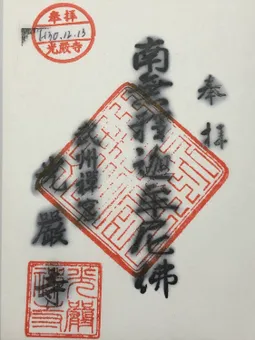 奉拝
南無釈迦牟尼佛
武州禅窓
光厳寺
奉拝
H30.12.13
光厳寺